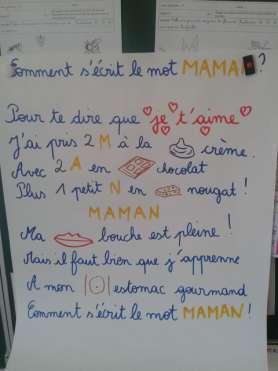 Comment s'écrit le mot MAMAN ?
Pour te dire que je t'aime
J'ai pris 2 M à la crème.
Avec 2 A en chocolat
Plus 1 petit N en nougat !
MAMAN
Ma bouche est pleine !
Mais il faut bien que j'apprenne
A mon estomac gourmand
Comment s'écrit le mot MAMAN !